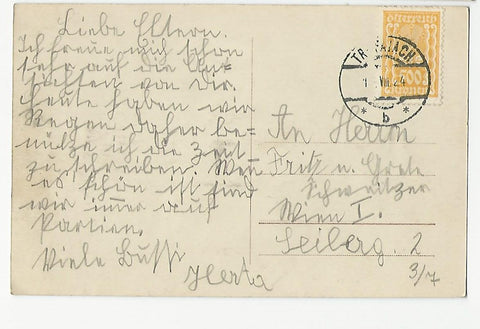 Liebe Eltern.
Ich freue mich schon
sehr auf die
von Dir.
heute haben wir
Regen daher be-
nütze ich die Zeit
zu schreiben. Wen
es schön ist sind
wir immer auf
Partien.
Viele Bussi
Herta
Österreich
TR ACH
1 VII 24
* b *
An Herrn
Fritz u. Grete
Schweitzer
Wien I.
Seilerg. 2
3/7